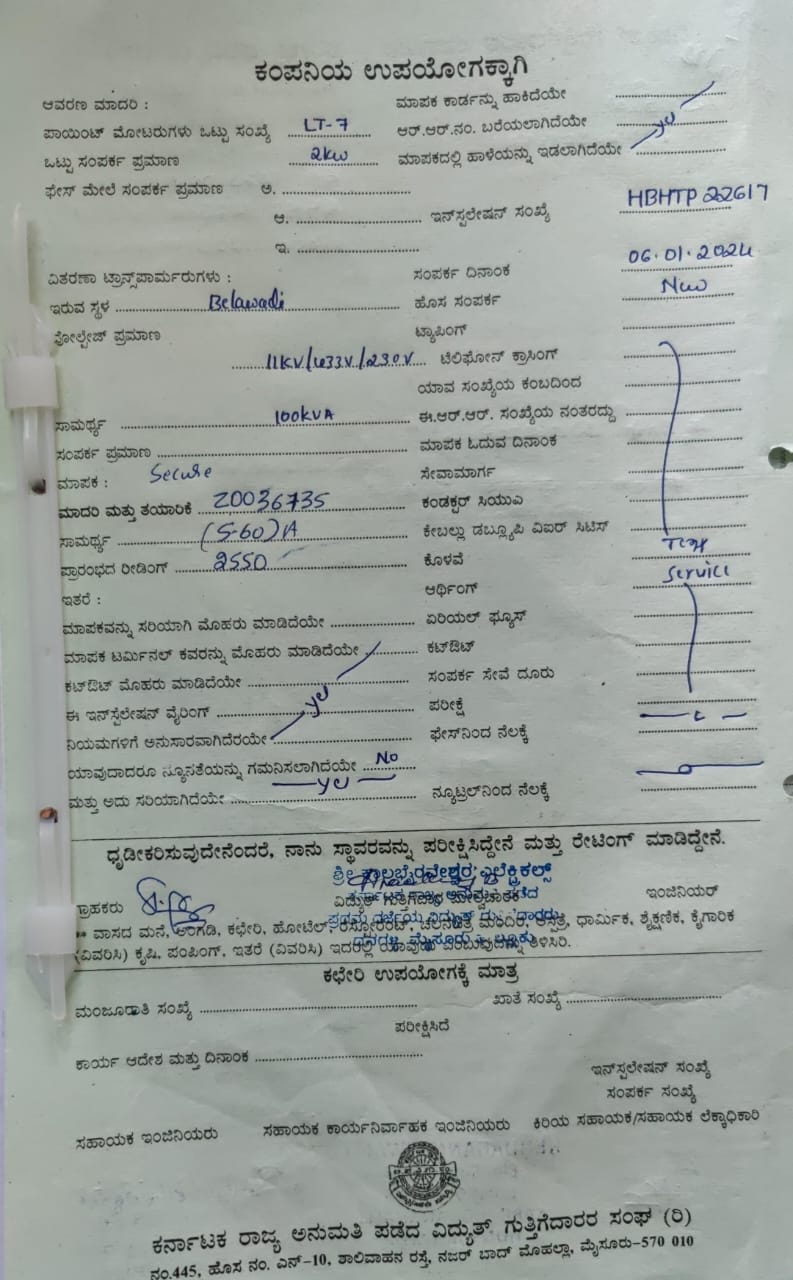 ಕಂಪನಿಯ ಉಪಯೋಗಕ್ಕಾಗಿ
ಆವರಣ ಮಾದರಿ : ಮಾಪಕ ಕಾರ್ಡನ್ನು ಹಾಕಿದೆಯೇ
ಪಾಯಿಂಟ್ ಮೋಟರುಗಳು ಒಟ್ಟು ಸಂಖ್ಯೆ LT-7 ಆರ್.ಆರ್.ನಂ. ಬರೆಯಲಾಗಿದೆಯೇ
ಒಟ್ಟು ಸಂಪರ್ಕ ಪ್ರಮಾಣ 2kw ಮಾಪಕದಲ್ಲಿ ಹಾಳೆಯನ್ನು ಇಡಲಾಗಿದೆಯೇ
ಫೇಸ್ ಮೇಲೆ ಸಂಪರ್ಕ ಪ್ರಮಾಣ ಅ.
ಆ. ಇನ್‌ಸ್ಟಲೇಷನ್ ಸಂಖ್ಯೆ HBHTP 22617
ಇ.
ವಿತರಣಾ ಟ್ರಾನ್ಸ್‌ಪಾರ್ಮರುಗಳು : ಸಂಪರ್ಕ ದಿನಾಂಕ 06.01.2024
ಇರುವ ಸ್ಥಳ Belawadi ಹೊಸ ಸಂಪರ್ಕ New
ವೋಲ್ಟೇಜ್ ಪ್ರಮಾಣ ಟ್ಯಾಪಿಂಗ್
11KV/433V/230V ಟೆಲಿಫೋನ್ ಕ್ರಾಸಿಂಗ್
ಯಾವ ಸಂಖ್ಯೆಯ ಕಂಬದಿಂದ
ಸಾಮರ್ಥ್ಯ 100KVA ಈ.ಆರ್.ಆರ್. ಸಂಖ್ಯೆಯ ನಂತರದ್ದು
ಸಂಪರ್ಕ ಪ್ರಮಾಣ ಮಾಪಕ ಓದುವ ದಿನಾಂಕ
ಮಾಪಕ : Secure ಸೇವಾಮಾರ್ಗ
ಮಾದರಿ ಮತ್ತು ತಯಾರಿಕೆ 20036735 ಕಂಡಕ್ಟರ್ ಸಿಯುಎ
ಸಾಮರ್ಥ್ಯ (5-60)A ಕೇಬಲ್ಲು ಡಬ್ಲ್ಯೂಪಿ ವಿಐಆರ್ ಸಿಟಿಸ್
ಪ್ರಾರಂಭದ ರೀಡಿಂಗ್ 2550 ಕೊಳವೆ
ಇತರೆ : ಆರ್ಥಿಂಗ್ Service
ಮಾಪಕವನ್ನು ಸರಿಯಾಗಿ ಮೊಹರು ಮಾಡಿದೆಯೇ ಏರಿಯಲ್ ಫ್ಯೂಸ್
ಮಾಪಕ ಟರ್ಮಿನಲ್ ಕವರನ್ನು ಮೊಹರು ಮಾಡಿದೆಯೇ ಕಟ್‌ಔಟ್
ಕಟ್‌ಔಟ್ ಮೊಹರು ಮಾಡಿದೆಯೇ ಸಂಪರ್ಕ ಸೇವೆ ದೂರು
ಈ ಇನ್‌ಸ್ಟಲೇಷನ್ ವೈರಿಂಗ್ ಪರೀಕ್ಷೆ
ನಿಯಮಗಳಿಗೆ ಅನುಸಾರವಾಗಿದೆರಯೇ ಫೇಸ್‌ನಿಂದ ನೆಲಕ್ಕೆ
ಯಾವುದಾದರೂ ನ್ಯೂನತೆಯನ್ನು ಗಮನಿಸಲಾಗಿದೆಯೇ No
ಮತ್ತು ಅದು ಸರಿಯಾಗಿದೆಯೇ ನ್ಯೂಟ್ರಲ್‌ನಿಂದ ನೆಲಕ್ಕೆ
ಧೃಡೀಕರಿಸುವುದೇನೆಂದರೆ, ನಾನು ಸ್ಥಾವರವನ್ನು ಪರೀಕ್ಷಿಸಿದ್ದೇನೆ ಮತ್ತು ರೇಟಿಂಗ್ ಮಾಡಿದ್ದೇನೆ.
ಶ್ರೀ ಕಾಲಭೈರವೇಶ್ವರ ಎಲೆಕ್ಟ್ರಿಕಲ್ಸ್
ಗ್ರಾಹಕರು ವಿದ್ಯುತ್ ಗುತ್ತಿಗೆದಾರ ಮೇಲ್ವಿಚಾರಕ ಇಂಜಿನಿಯರ್
** ವಾಸದ ಮನೆ, ಅಂಗಡಿ, ಕಛೇರಿ, ಹೋಟೆಲ್, ರೆಸ್ಟೋರೆಂಟ್, ಚಲನಚಿತ್ರ ಮಂದಿರ, ಆಸ್ಪತ್ರೆ, ಧಾರ್ಮಿಕ, ಶೈಕ್ಷಣಿಕ, ಕೈಗಾರಿಕ
(ವಿವರಿಸಿ) ಕೃಷಿ, ಪಂಪಿಂಗ್, ಇತರೆ (ವಿವರಿಸಿ) ಇದರಲ್ಲಿ ಯಾವುದು ಎಂಬುದನ್ನು ತಿಳಿಸಿರಿ.
ಕಛೇರಿ ಉಪಯೋಗಕ್ಕೆ ಮಾತ್ರ
ಮಂಜೂರಾತಿ ಸಂಖ್ಯೆ ಖಾತೆ ಸಂಖ್ಯೆ
ಪರೀಕ್ಷಿಸಿದೆ
ಕಾರ್ಯ ಆದೇಶ ಮತ್ತು ದಿನಾಂಕ
ಇನ್‌ಸ್ಟಲೇಷನ್ ಸಂಖ್ಯೆ
ಸಂಪರ್ಕ ಸಂಖ್ಯೆ
ಸಹಾಯಕ ಇಂಜಿನಿಯರು ಸಹಾಯಕ ಕಾರ್ಯನಿರ್ವಾಹಕ ಇಂಜಿನಿಯರು ಕಿರಿಯ ಸಹಾಯಕ/ಸಹಾಯಕ ಲೆಕ್ಕಾಧಿಕಾರಿ
ಕರ್ನಾಟಕ ರಾಜ್ಯ ಅನುಮತಿ ಪಡೆದ ವಿದ್ಯುತ್ ಗುತ್ತಿಗೆದಾರರ ಸಂಘ (ರಿ)
ನಂ.445, ಹೊಸ ನಂ. ಎನ್-10, ಶಾಲಿವಾಹನ ರಸ್ತೆ, ನಜರ್ ಬಾದ್ ಮೊಹಲ್ಲಾ, ಮೈಸೂರು-570 010